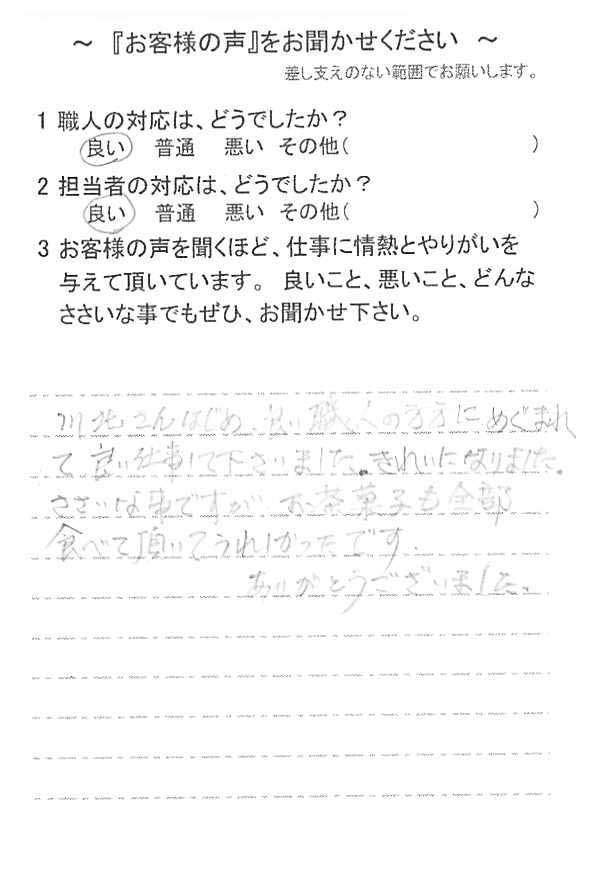 ~ 『お客様の声』をお聞かせください ~
差し支えのない範囲でお願いします。
1 職人の対応は、どうでしたか？
良い 普通 悪い その他( )
2 担当者の対応は、どうでしたか？
良い 普通 悪い その他( )
3 お客様の声を聞くほど、仕事に情熱とやりがいを
与えて頂いています。 良いこと、悪いこと、どんな
ささいな事でもぜひ、お聞かせ下さい。
川北さんはじめ、良い職人の方方にめぐまれ
て良い仕事して下さいました。きれいになりました。
ささいな事ですが お茶菓子も全部
食べて頂いてうれしかったです.
ありがとうございました.